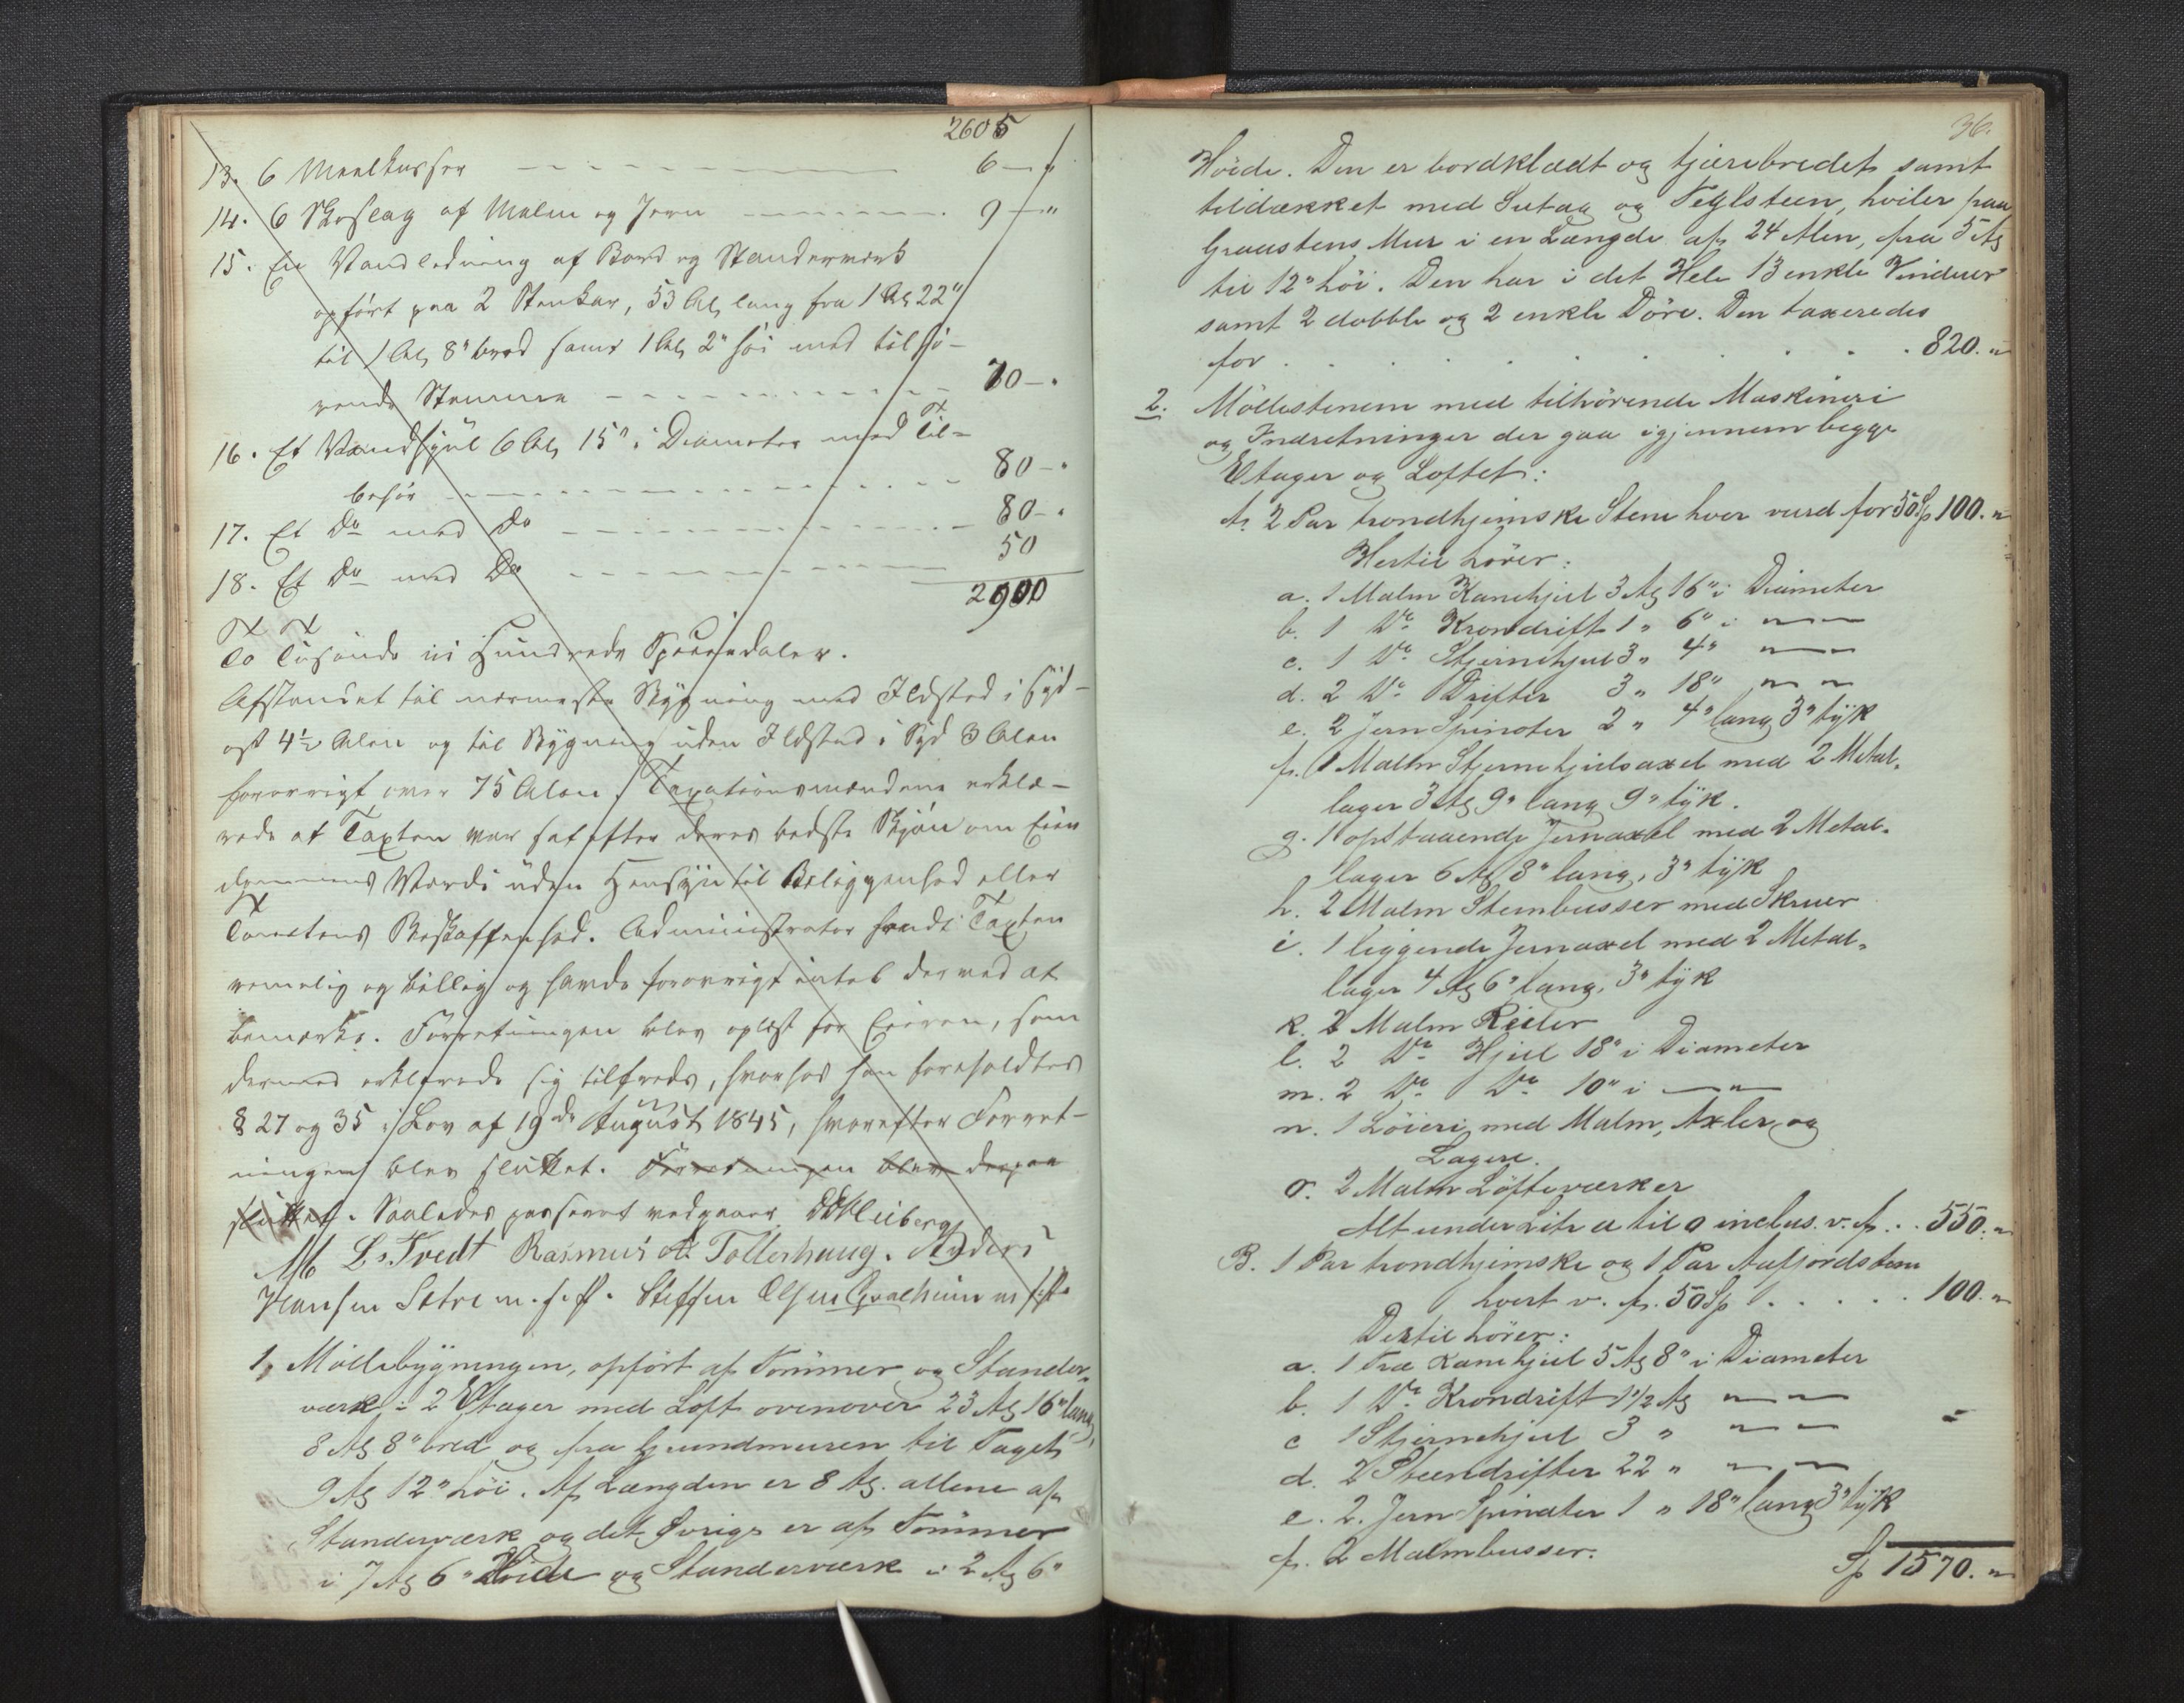 2605
13. 6 Meelkasser - - - - 6 - "
14. 6 Skoslag af Malm og Jern - - - - 9 - "
15. En Vandledning af Bord og Standerværk
opført paa 2 Stenkar, 53 Al, lang fra 1 Al 22"
til 1 Al, 8" bred samt 1 Al, 2" høi med tilhø-
rende Stemme - - - - 70 - "
16. Et Vandhjul 6 Al, 15" i Diameter med Til-
behør - - - - 80 - "
17. Et Do med Do - - - - 80 - "
18. Et Do med Do - - - - 50
2900
To Tusinde ni Hundrede Speciedaler.
Afstandet til nærmeste Bygning med Ildsted i Syd-
ost 4½ Alen og til Bygning uden Ildsted i Syd 3 Alen
forøvrigt over 75 Alen. Taxationsmændene erklæ-
rede at Taxten var sat efter deres bedste Skjøn om Eien
dommens Værdi uden Hensyn til Beliggenhed eller
Tomtens Beskaffenhed. Administrator fandt Taxten
rimelig og billig og havde forøvrigt intet derved at
bemærke. Forretningen blev oplæst for Eieren, som
dermed erklærede sig tilfreds, hvorhos han foreholdtes
§ 27 og 35 i Lov af 19de August 1845, hvorefter Forret-
ningen blev sluttet. Forretningen blev derpaa
sluttet. Saaledes passeret vedgaaer Heiberg
L. Tvedt Rasmus A. Tollerhaug. Anders
Hansen Sætre m. f. P. Steffen Olsen Qvalheim m. f. P.
1, Møllebygningen, opført af Tømmer og Stander-
værk i 2 Etager med Loft ovenover 23 Al 16" lang,
8 Al 8" bred og fra Grundmuren til Taget
9 Al 12" høi. Af Længden er 8 Al. allene af
Standerværk og det Øvrige er af Tømmer
i 7 Al 6" Høide og Standerværk i 2 Al 6"
36.
Høide. Den er bordklædt og tjærebredet samt
tildækket med Sutag og Teglsteen, hviler paa
Graastens Mur i en Længde af 24 Alen, fra 5 Al
til 12" høi. Den har i det Hele 13 enkle Vinduer
samt 2 dobble og 2 enkle Döre. Den taxeredes
for . . . . . . 820. "
2. Möllestenene med tilhørende Maskineri
og Indretninger der gaa igjennem begge
Etager og Loftet:
A. 2 Par trondhjemske Stene hver værd for 50 Sp 100. "
Hertil hörer:
a. 1 Malm Kamhjul 3 Al 16" i Diameter
b. 1 Do Krondrift 1 " 6" i " "
c. 1 Do Stjernehjul 3 " 4" " "
d. 2 Do Drifter 3 " 18" " "
e. 2 Jern Spindler 2 " 4" lang 3" tÿk
f. 1 Malm Stjernehjulsaxel med 2 Metal-
lager 3 Al 9" lang 9" tÿk.
g. 1 opstaaende Jernaxel med 2 Metal-
lager 6 Al 8" lang, 3" tÿk
h. 2 Malm Stembusser med Skruer
i. 1 liggende Jernaxel med 2 Metal-
lager 4 Al 6" lang, 3" tÿk
k. 2 Malm Reiler
l. 2 Do Hjul 18" i Diameter
m. 2 Do Do 10" i — "
n. 1 Löieri med Malm, Axler og
Lagere.
o. 2 Malm Löfteværker
Alt under Litr a til o inclus. v. f. . . 550. "
B. 1 Par trondhjemske og 1 Par Aafjordstene
hvert v. f. 50 Sp . . . . . 100. "
Dertil hörer:
a. 1 Træ Kamhjul 5 Al 8" i Diameter
b. 1 Do Krondrift 1½ Al " "
c 1 Stjernehjul 3 " " "
d. 2 Steendrifter 22 " " "
e. 2. Jern Spindler 1 " 18" lang 3" tÿk
f. 2 Malmbusser.
Sp 1570. "